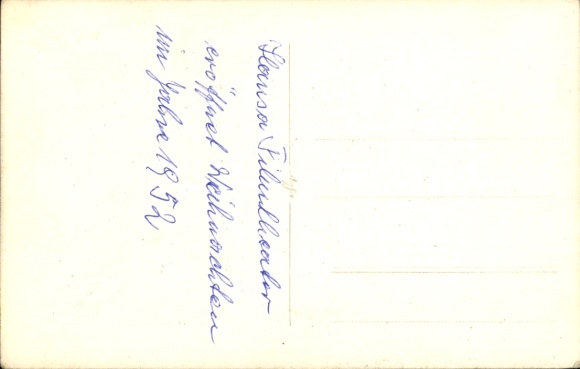 Hansa Filmtheater
eröffnet Weihnachten
im Jahre 1952